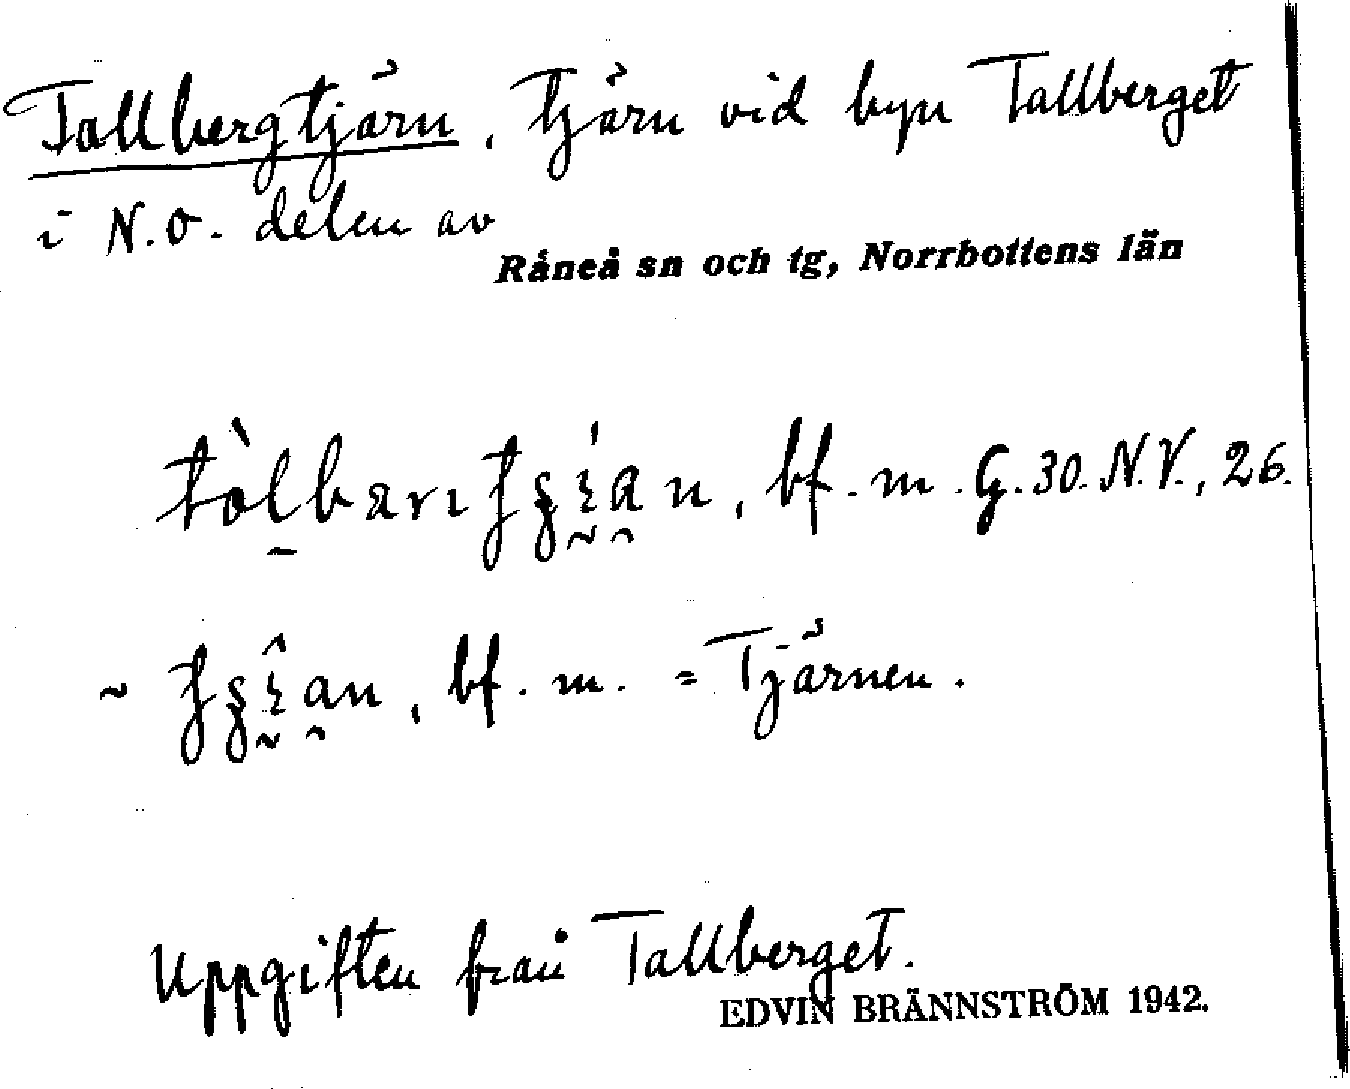 Tallbergtjärn, tjärn vid byn Tallberget
i N.O. delen av
Råneå sn och tg, Norrbottens län
bf. m. G. 30. N.V., 26.
~ bf. m. = Tjärnen.
Uppgiften från Tallberget.
EDVIN BRÄNNSTRÖM 1942.